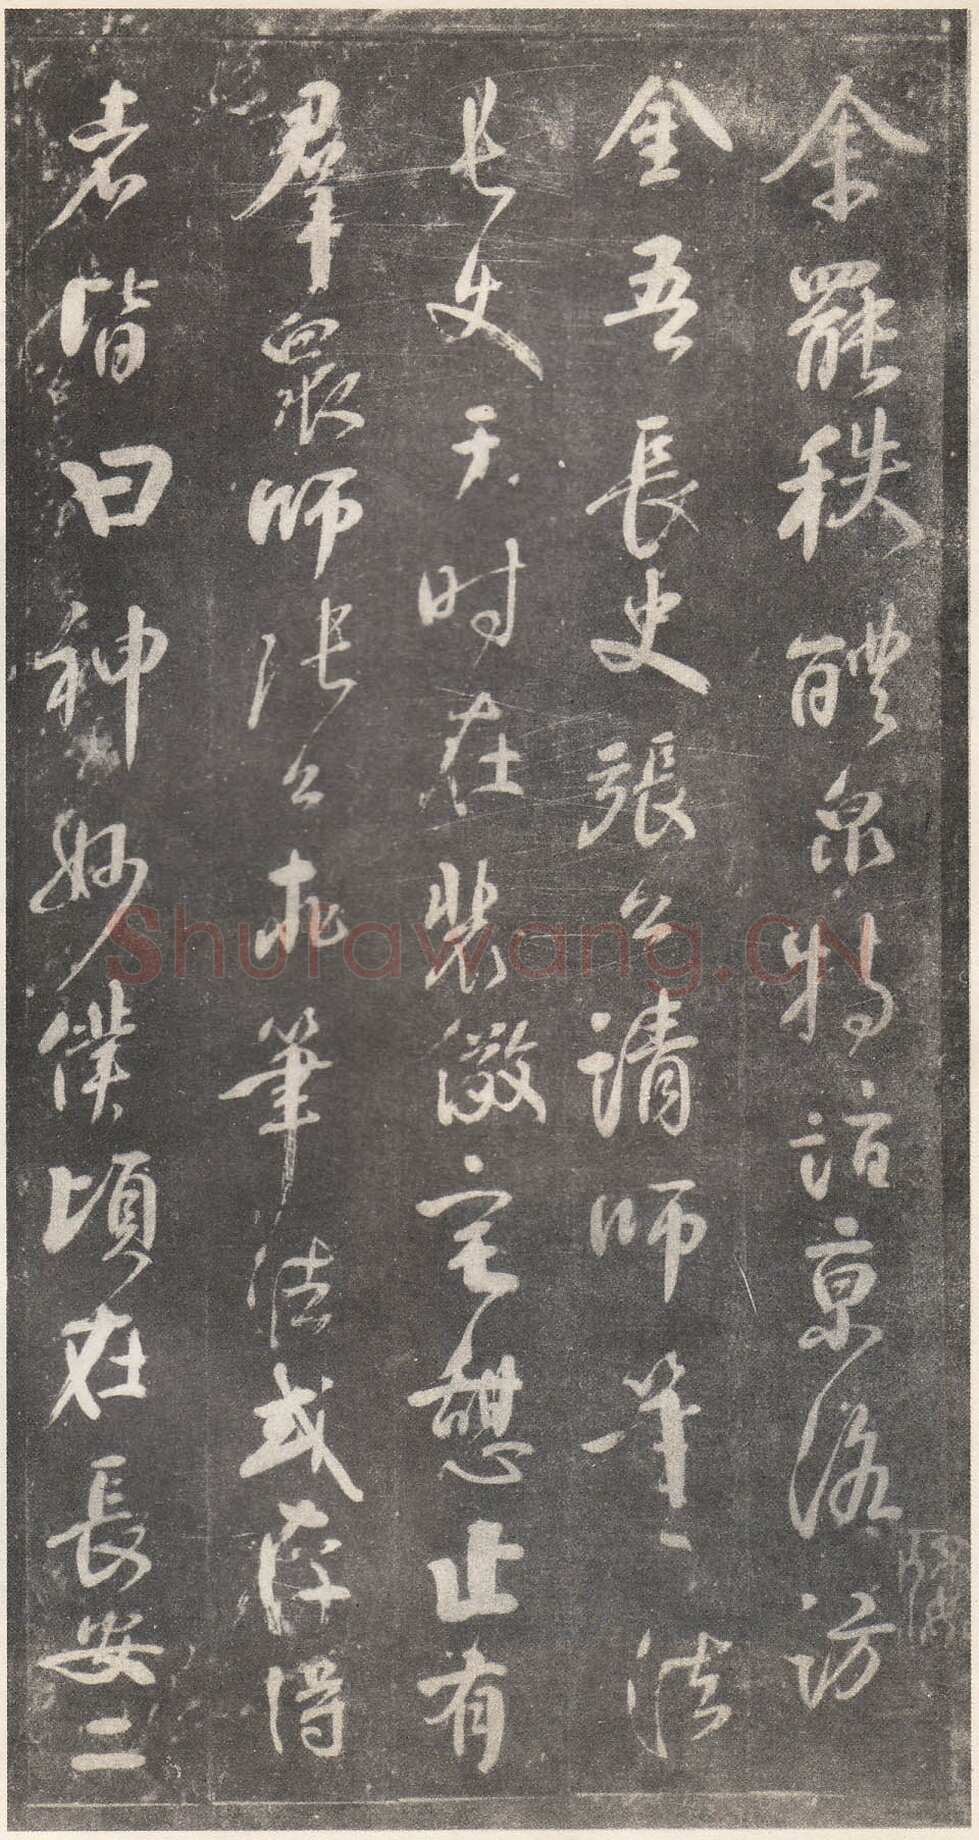 余罷秩醴泉特詣京洛訪
金吾長史張公請師筆法
長史于時在裴儆宅憩止有
羣眾師張公求筆法或存得
者皆曰神妙僕頃在長安二
Shufawang.CN